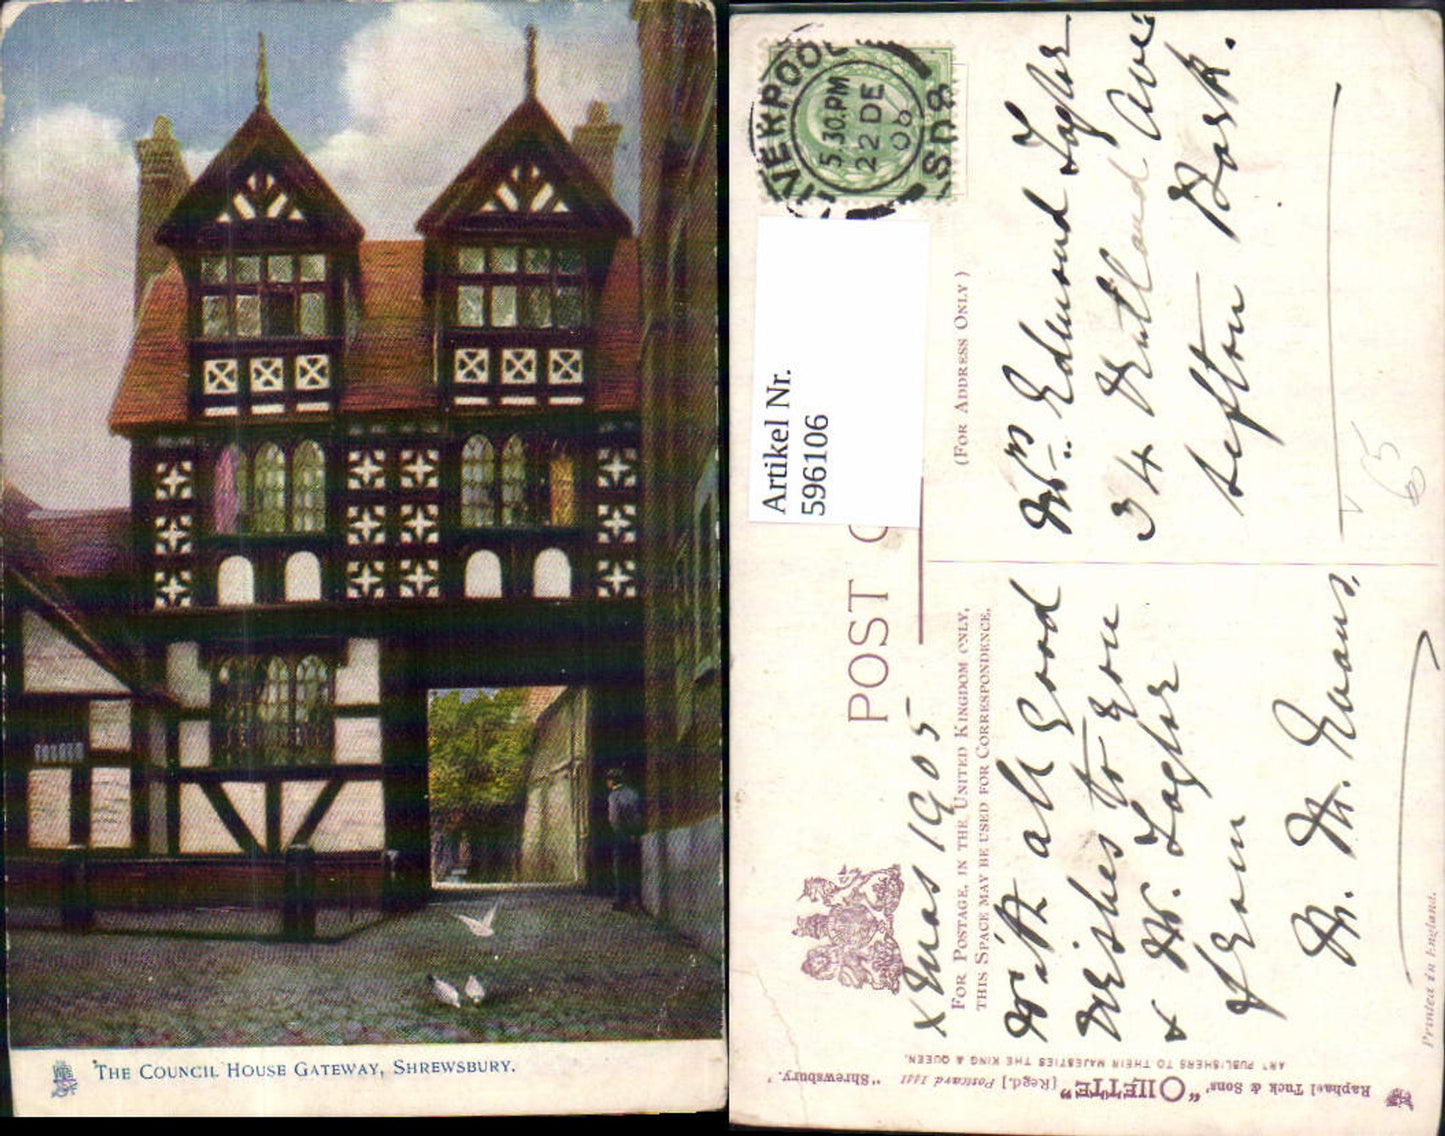 THE COUNCIL HOUSE GATEWAY, SHREWSBURY.
LIVERPOOL
5.30.PM
22 DE
06
Artikel Nr.
596106
POST C
(FOR ADDRESS ONLY)
FOR POSTAGE, IN THE UNITED KINGDOM ONLY,
THIS SPACE MAY BE USED FOR CORRESPONDENCE.
Xmas 1905
With all good
wishes to you
& Mr. Taylor
from
M. M. Evans.
Mrs. Edmund Taylor
34 Rutland Ave:
Sefton Park.
65
Raphael Tuck & Sons' "OILETTE" [Regd.] Postcard 1441 "Shrewsbury."
ART PUBLISHERS TO THEIR MAJESTIES THE KING & QUEEN.
Printed in England.